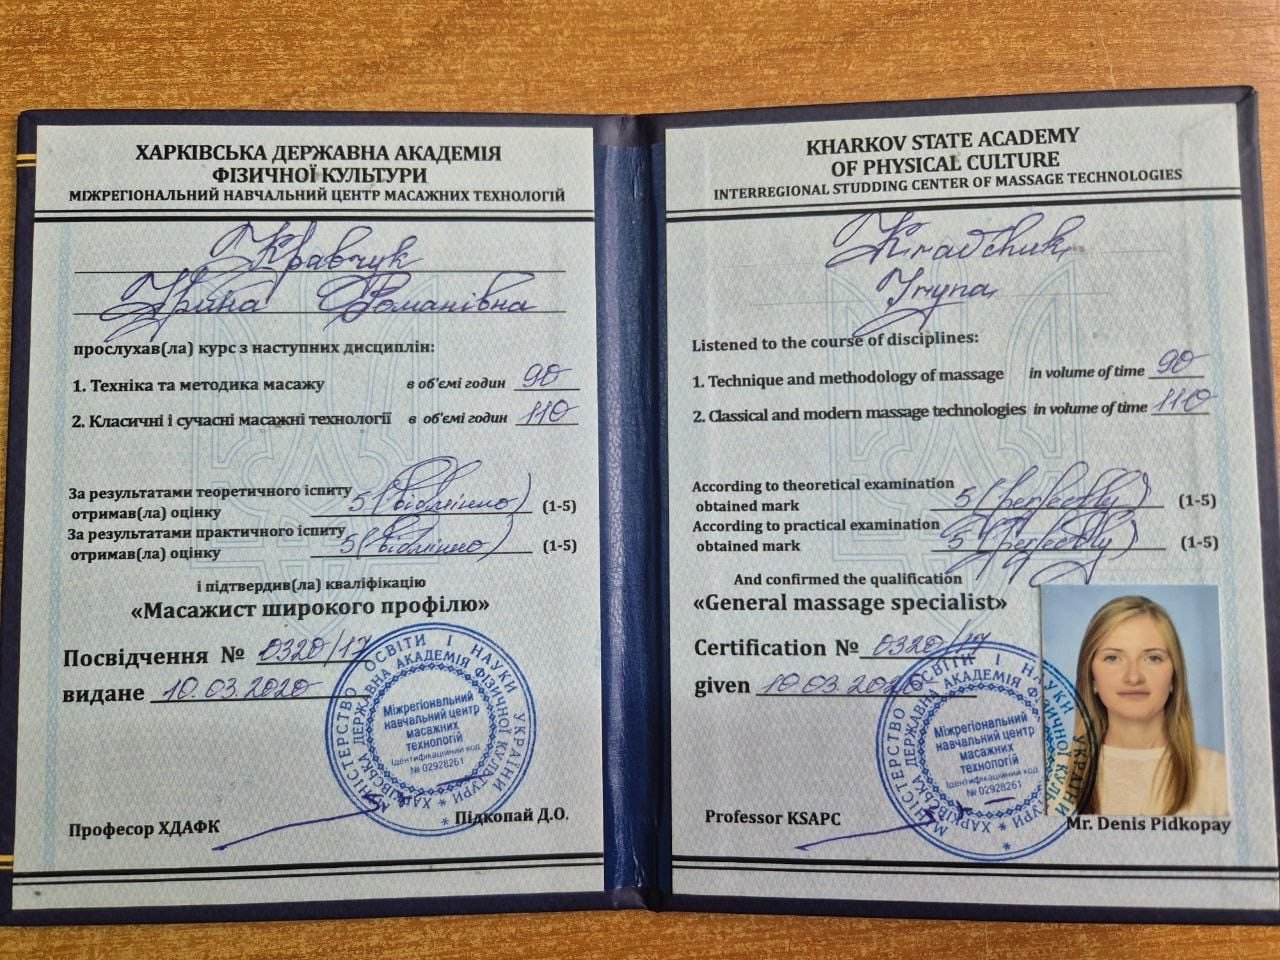 ХАРКІВСЬКА ДЕРЖАВНА АКАДЕМІЯ
ФІЗИЧНОЇ КУЛЬТУРИ
МІЖРЕГІОНАЛЬНИЙ НАВЧАЛЬНИЙ ЦЕНТР МАСАЖНИХ ТЕХНОЛОГІЙ
Кравчук
Ірина Романівна
прослухав(ла) курс з наступних дисциплін:
1. Техніка та методика масажу в об'ємі годин 90
2. Класичні і сучасні масажні технології в об'ємі годин 110
За результатами теоретичного іспиту
отримав(ла) оцінку 5 (відмінно) (1-5)
За результатами практичного іспиту
отримав(ла) оцінку 5 (відмінно) (1-5)
і підтвердив(ла) кваліфікацію
«Масажист широкого профілю»
Посвідчення № 0320/17
видане 10.03.2020
МІНІСТЕРСТВО ОСВІТИ І НАУКИ УКРАЇНИ
ХАРКІВСЬКА ДЕРЖАВНА АКАДЕМІЯ ФІЗИЧНОЇ КУЛЬТУРИ
Міжрегіональний
навчальний центр
масажних
технологій
Ідентифікаційний код
№ 02928261
Професор ХДАФК Підкопай Д.О.
KHARKOV STATE ACADEMY
OF PHYSICAL CULTURE
INTERREGIONAL STUDDING CENTER OF MASSAGE TECHNOLOGIES
Kravchuk
Iryna
Listened to the course of disciplines:
1. Technique and methodology of massage in volume of time 90
2. Classical and modern massage technologies in volume of time 110
According to theoretical examination
obtained mark 5 (perfectly) (1-5)
According to practical examination
obtained mark 5 (perfectly) (1-5)
And confirmed the qualification
«General massage specialist»
Certification № 0320/17
given 10.03.2020
МІНІСТЕРСТВО ОСВІТИ І НАУКИ УКРАЇНИ
ХАРКІВСЬКА ДЕРЖАВНА АКАДЕМІЯ ФІЗИЧНОЇ КУЛЬТУРИ
Міжрегіональний
навчальний центр
масажних
технологій
Ідентифікаційний код
№ 02928261
Professor KSAPC Mr. Denis Pidkopay